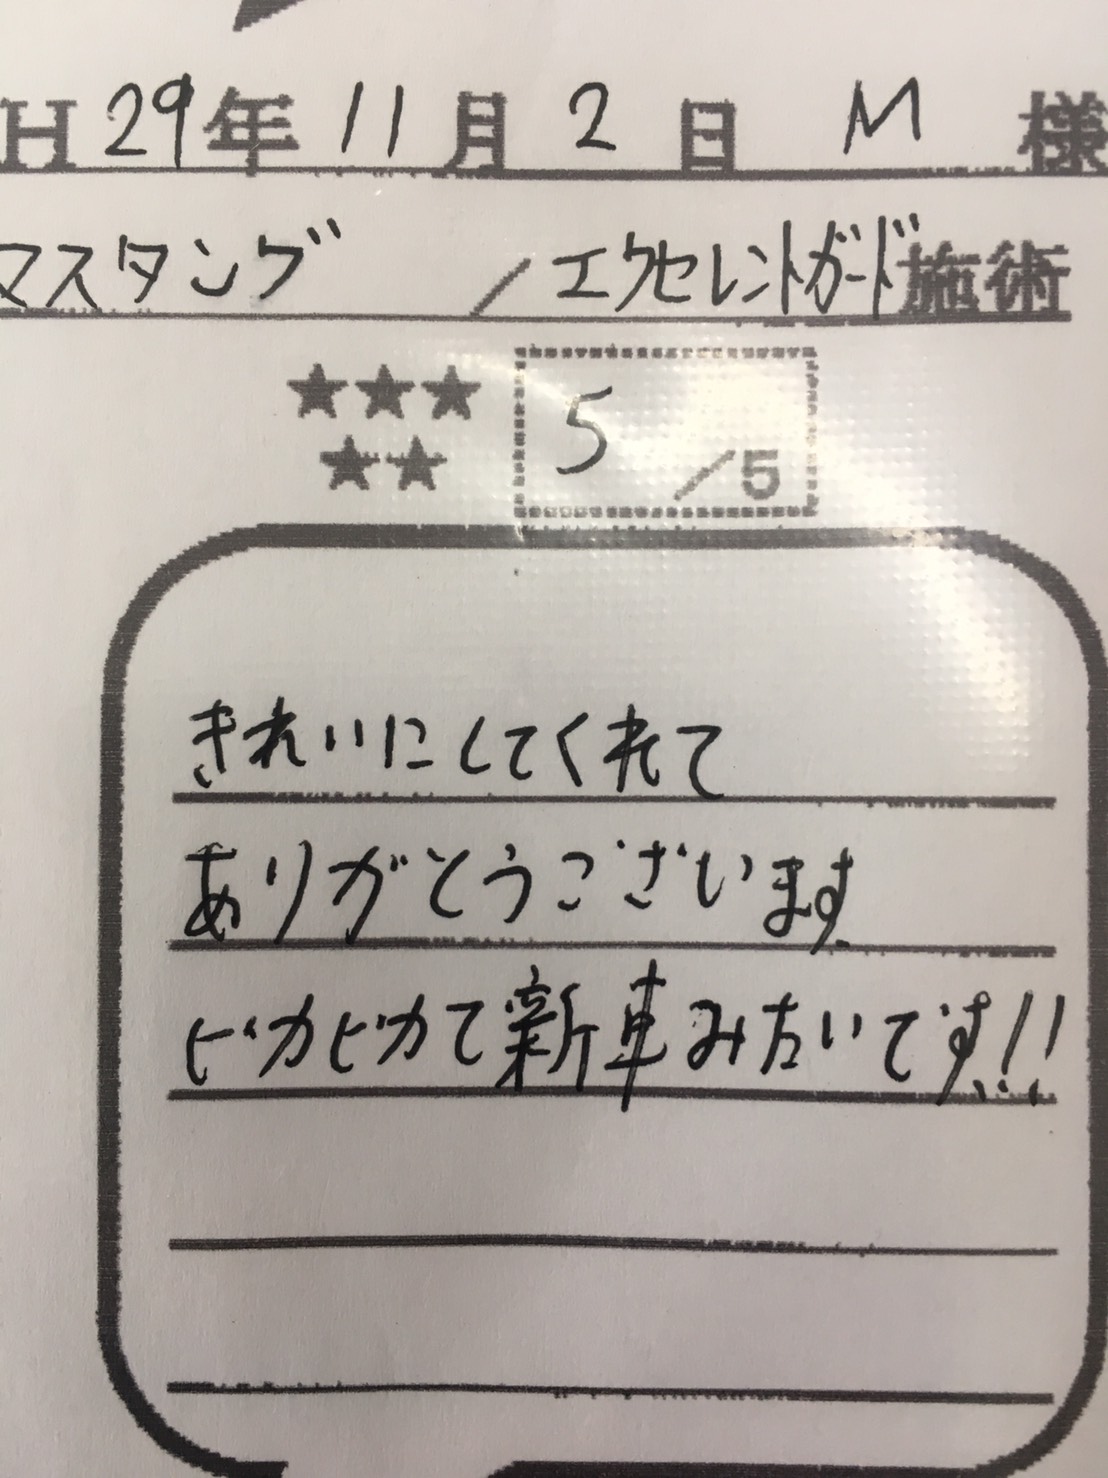 H29年11月2日 M 様
マスタング / エクセレントガード施術
★★★ 5/5
★★
きれいにしてくれて
ありがとうございます
ピカピカで新車みたいです!!